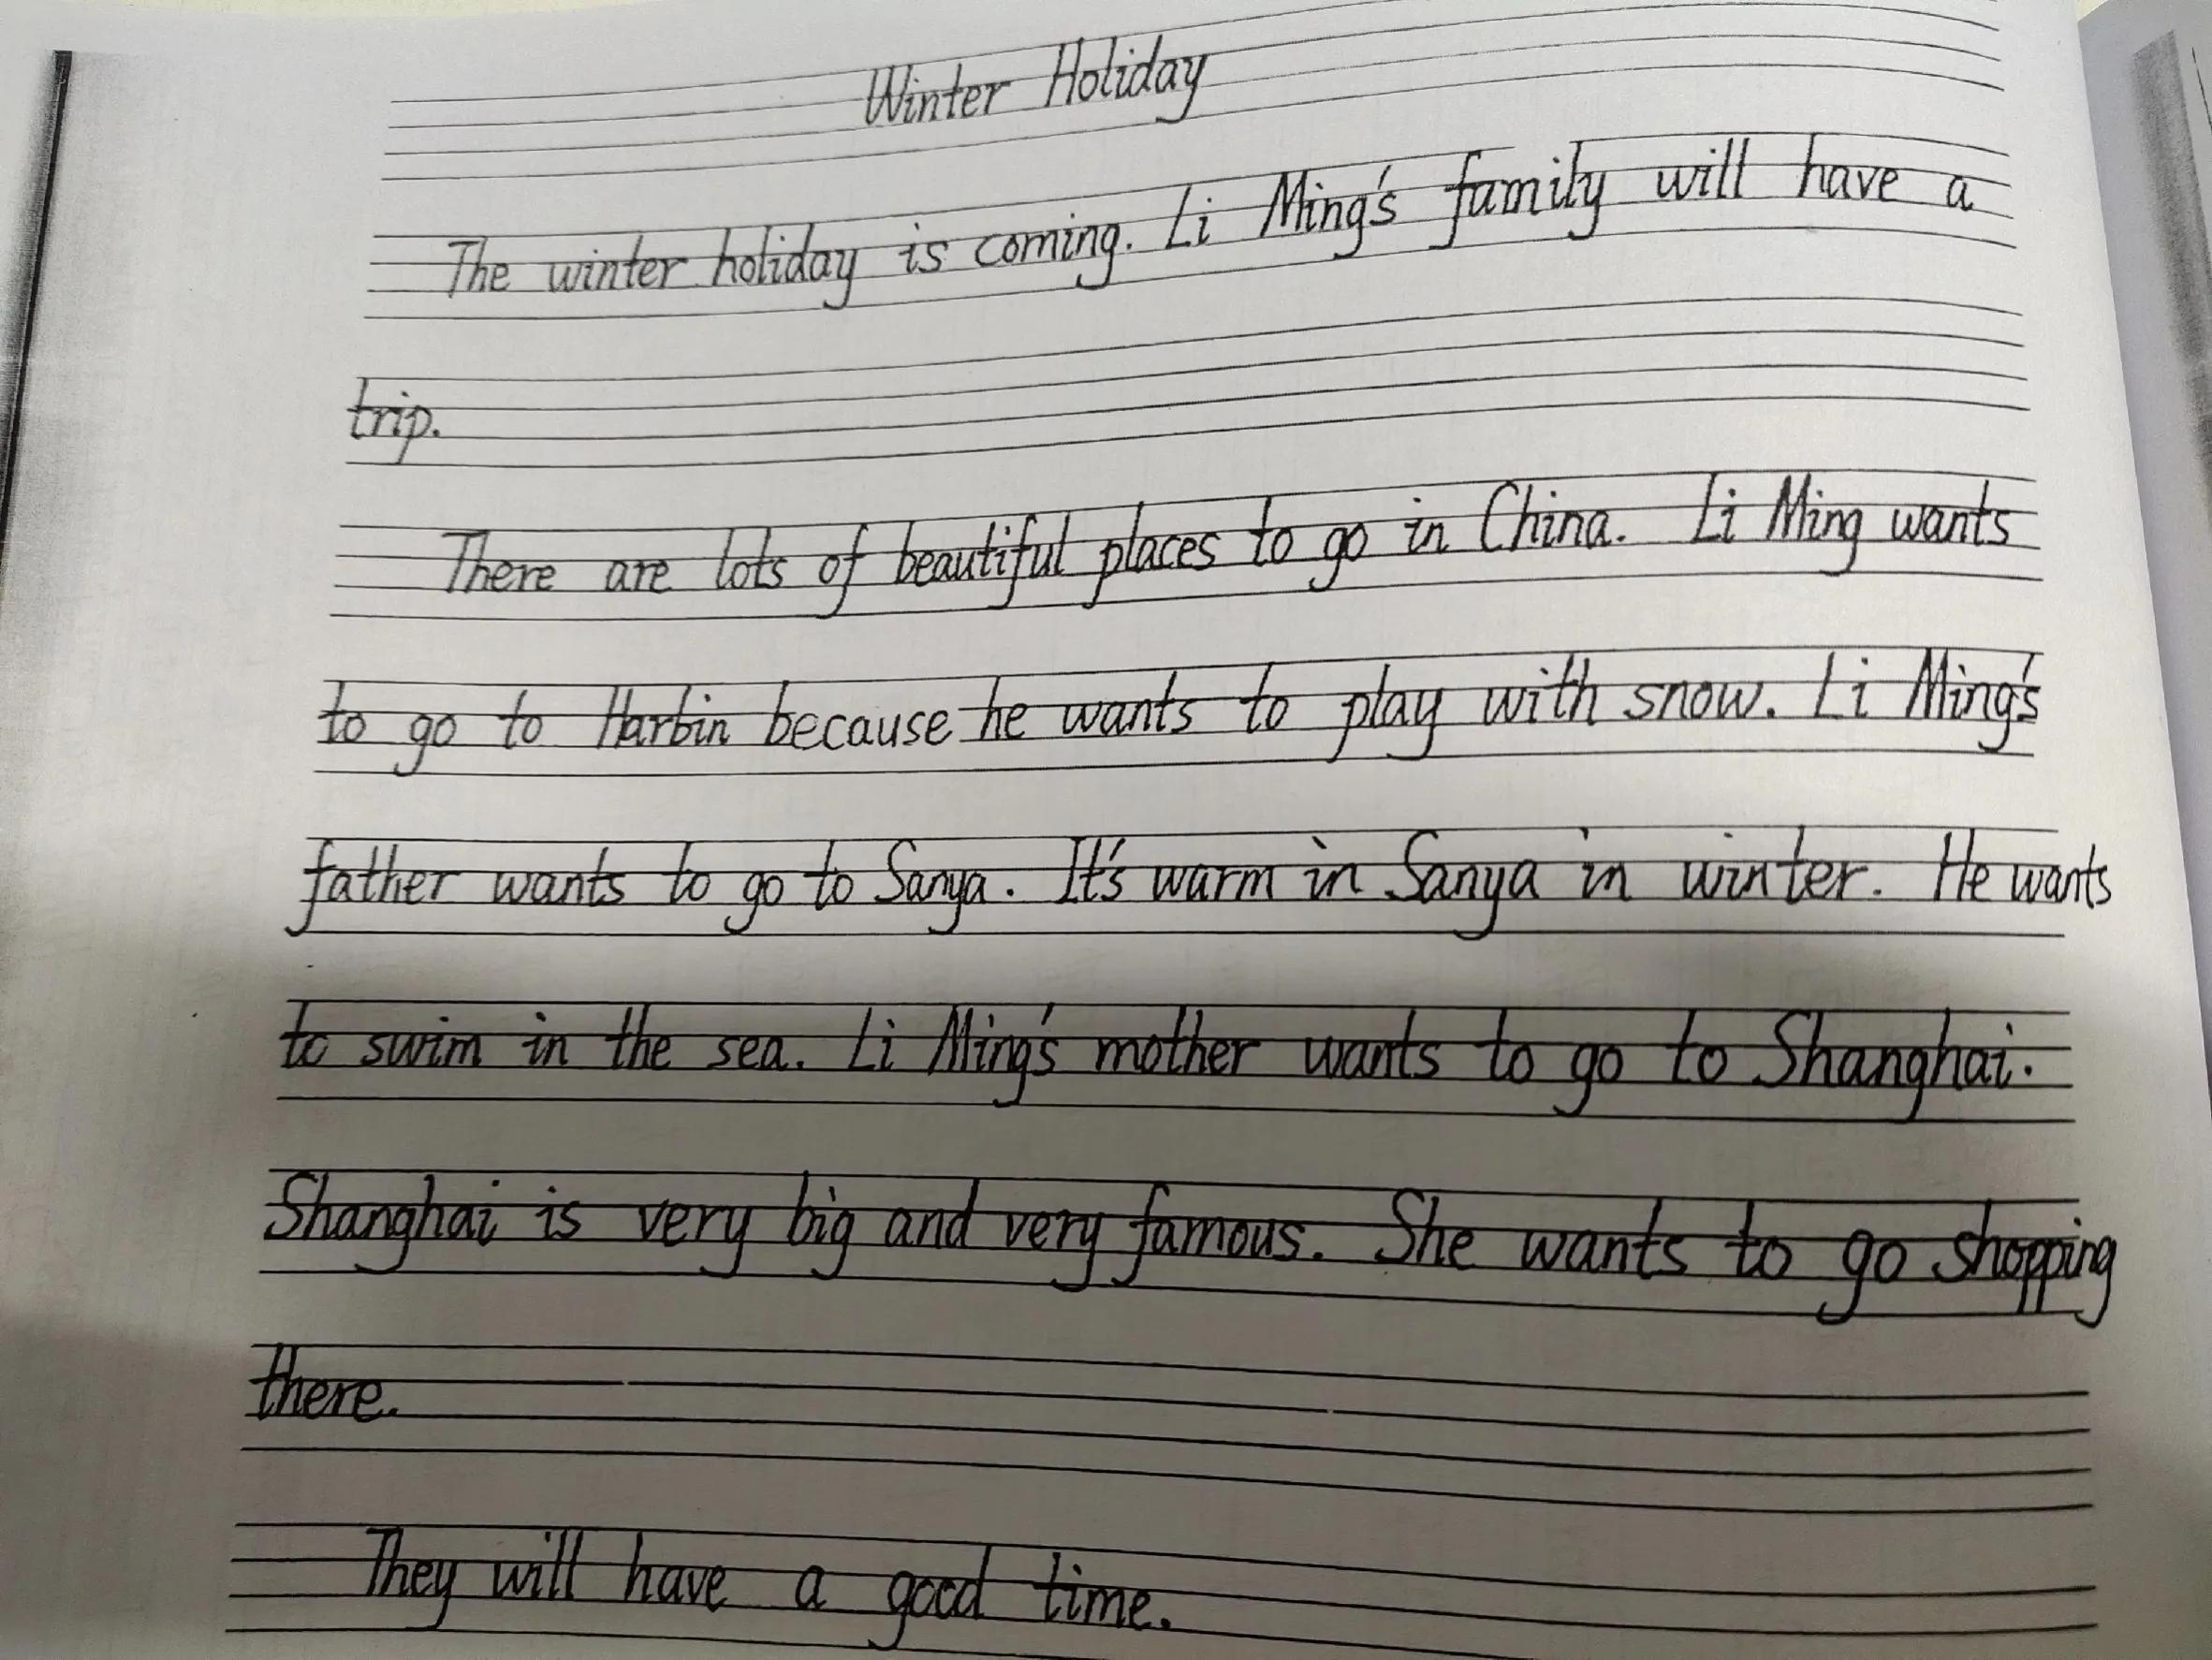 Winter Holiday
The winter holiday is coming. Li Ming's family will have a
trip.
There are lots of beautiful places to go in China. Li Ming wants
to go to Harbin because he wants to play with snow. Li Ming's
father wants to go to Sanya. It's warm in Sanya in winter. He wants
to swim in the sea. Li Ming's mother wants to go to Shanghai.
Shanghai is very big and very famous. She wants to go shopping
there.
They will have a good time.